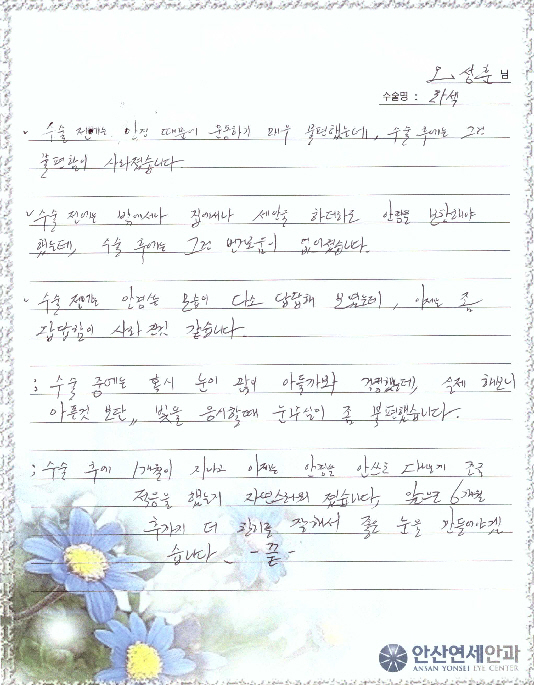 오 성훈 님
수술명 : 라섹
수술 전에는 안경 때문에 운동하기 매우 불편했는데, 수술 후에는 그런
불편함이 사라졌습니다.
수술 전에는 밖에서나 집에서나 세안을 하더라도 안경을 분리해야
했는데, 수술 후에는 그런 번거로움이 없어졌습니다.
수술 전에는 안경쓴 모습이 다소 답답해 보였는데, 이제는 좀
답답함이 사라진것 같습니다.
; 수술 중에는 혹시 눈이 많이 아플까봐 걱정했는데, 실제 해보니
아픈것 보단, 빛을 응시할때 눈부심이 좀 불편했습니다.
; 수술 후에 1개월이 지나고 이제는 안경을 안쓰고 다니는게 조금
적응을 했는지 자연스러워 졌습니다, 앞으로 6개월
추가기 더 관리를 잘해서 좋은 눈을 만들어야겠
습니다. - 끝 -
안산연세안과
ANSAN YONSEI EYE CENTER